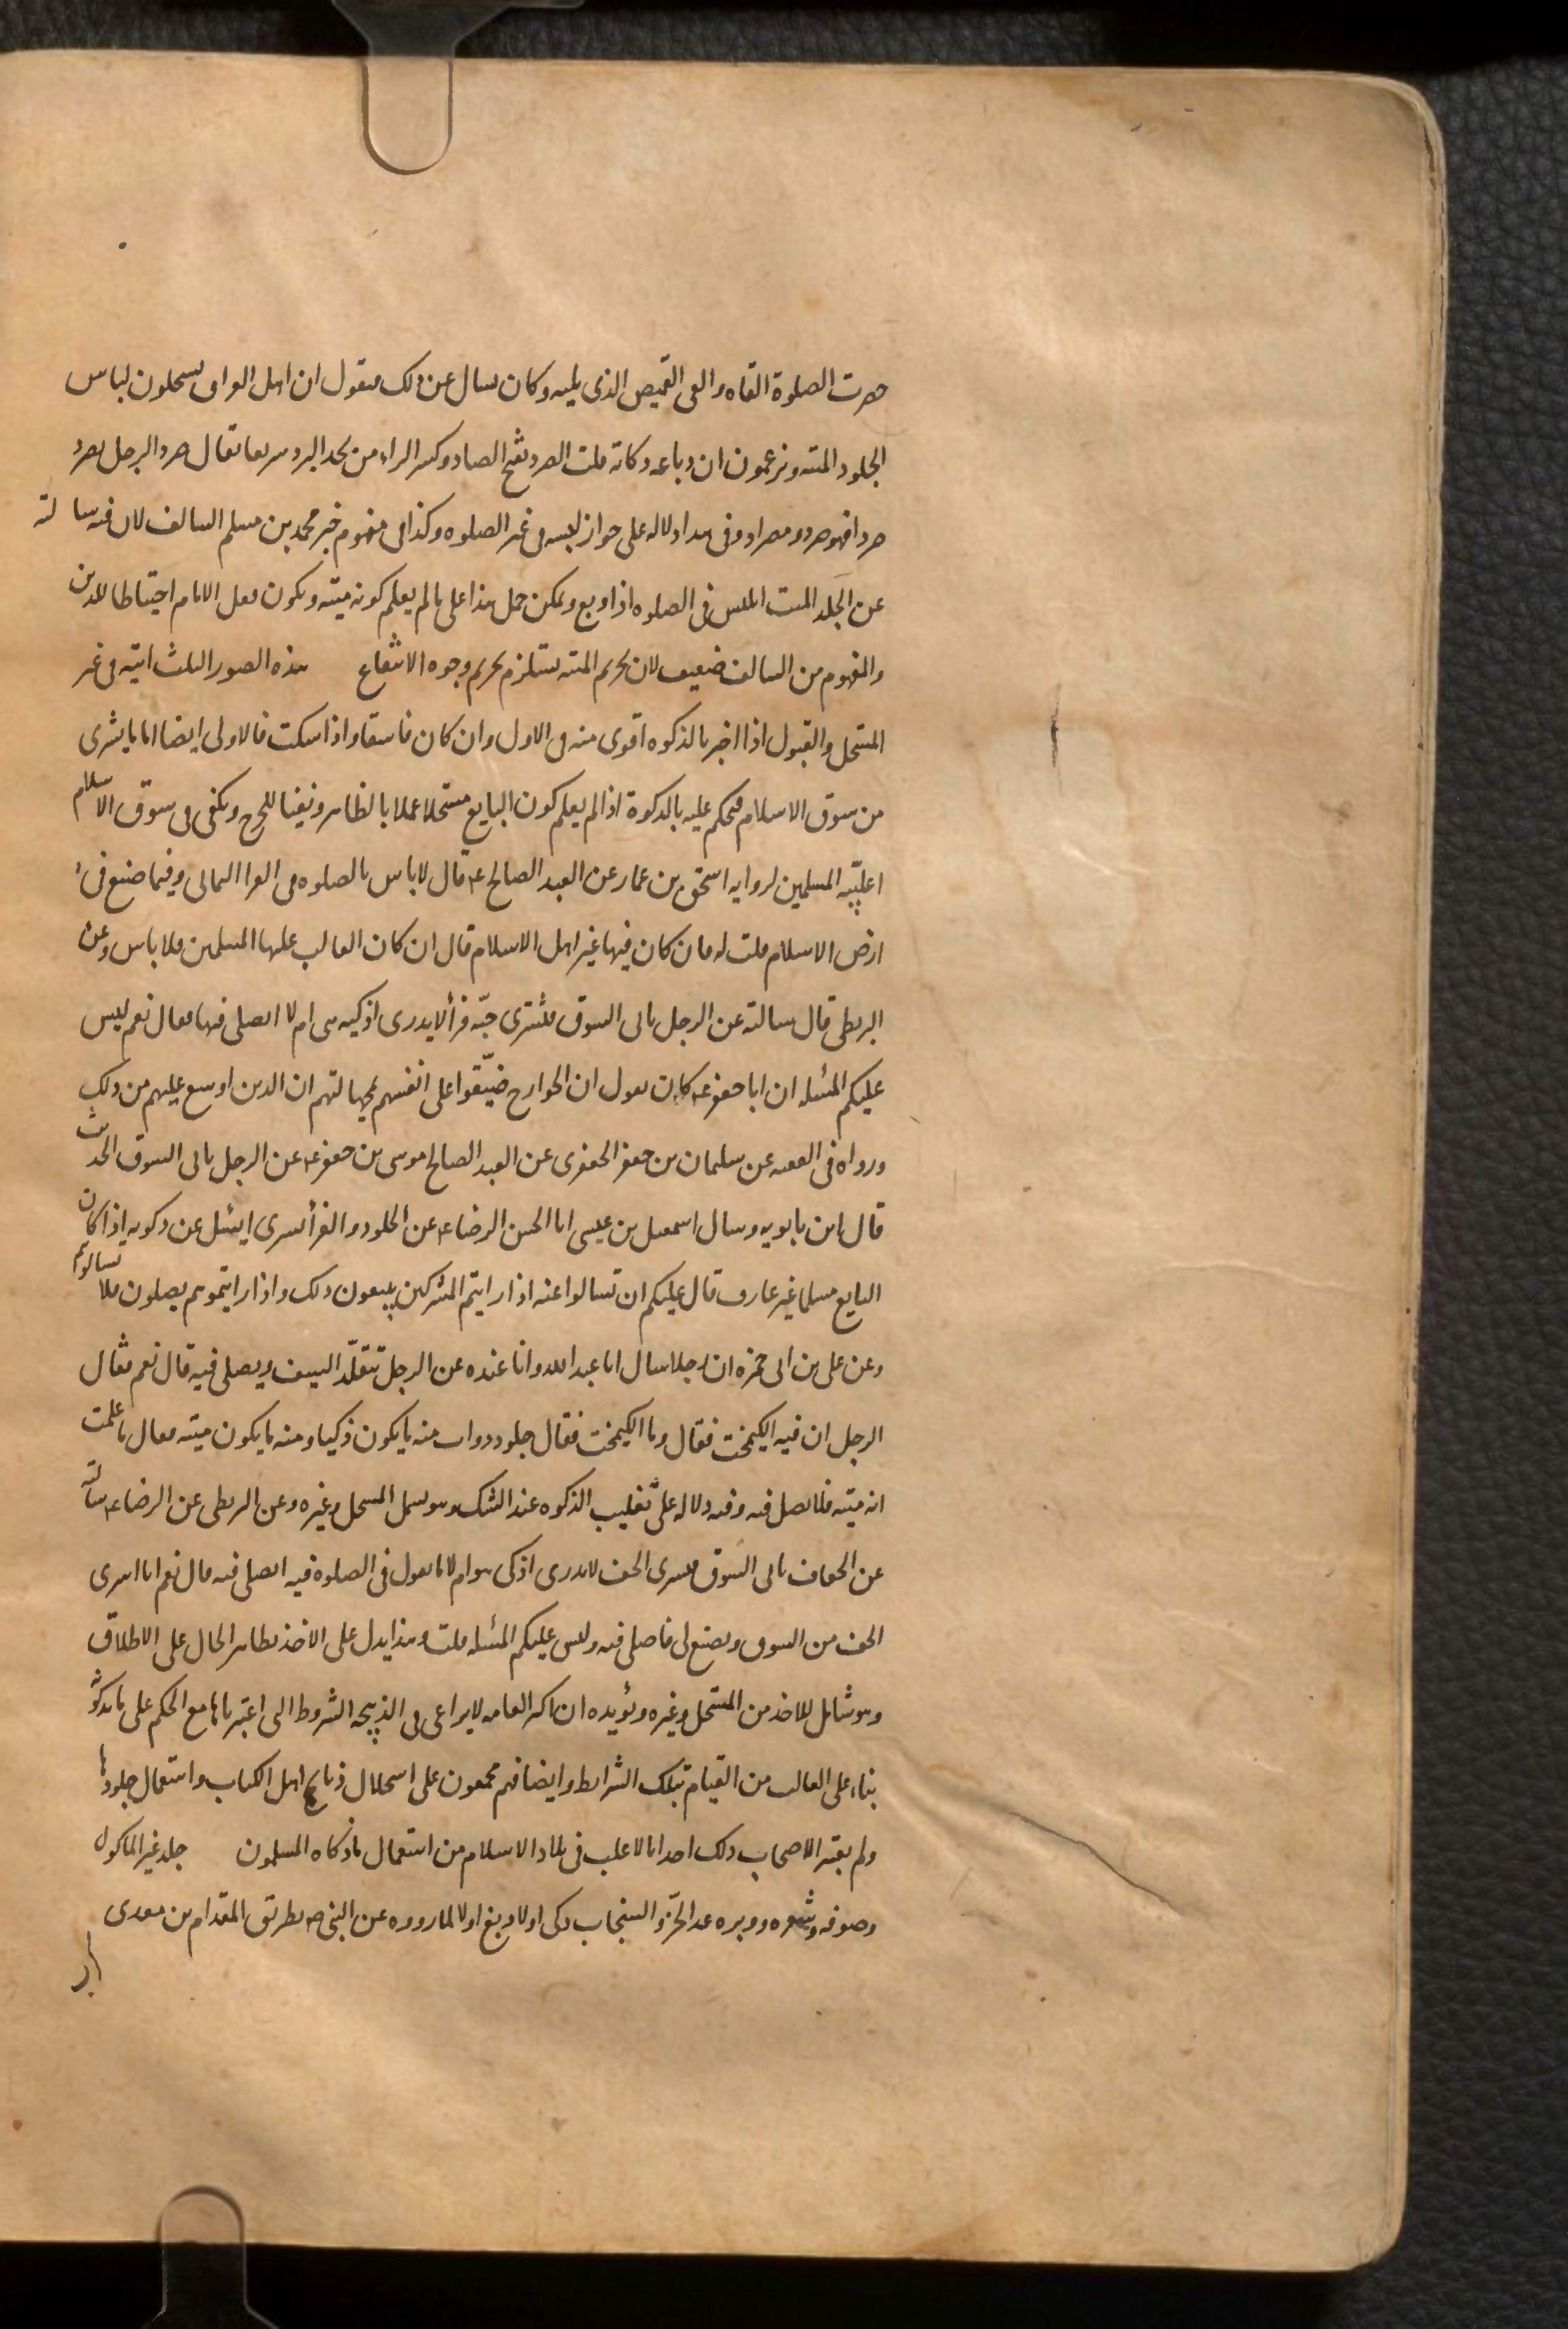 حضرت الصلوة القاه والقى القميص الذى يليه وكان يسال عن ذلك فيقول ان اهل العراق يستحلون لباس
الجلود الميته ويزعمون ان دباغه ذكاته قلت الصرد بفتح الصاد وكسر الراء من يجد البرد سريعا يقال صرد الرجل يصرد
صردا فهو صرد ومصراد وفى هذا دلاله على جواز لبسه فى غير الصلوه وكذا فى مفهوم خبر محمد بن مسلم السالف لان فيه سالته
عن الجلد الميت ايلبس فى الصلوه اذا دبغ ويمكن حمل هذا على ما لم يعلم كونه ميته ويكون فعل الامام احتياطا للدين
والمفهوم من السالف ضعيف لان تحريم الميته يستلزم تحريم وجوه الانتفاع هذه الصور الثلث اتيه فى غير
المستحل والقبول اذا اخبر بالذكوه اقوى منه فى الاول وان كان فاسقا واذا سكت فالاولى ايضا اما ما يشرى
من سوق الاسلام فيحكم عليه بالذكوة اذا لم يعلم كون البايع مستحلا عملا بالظاهر ونفيا للحرج ويكفى فى سوق الاسلام
اغلبيّه المسلمين لروايه اسحق بن عمار عن العبد الصالح ع قال لا باس بالصلوه فى الفرا اليمانى وفيما صنع فى
ارض الاسلام قلت له فان كان فيها غير اهل الاسلام قال ان كان الغالب عليها المسلمين فلا باس وعن
البزنطى قال سالته عن الرجل ياتى السوق فيشترى جبّه فرأ لا يدرى اذكيه هى ام لا ايصلى فيها فقال نعم ليس
عليكم المسئله ان ابا جعفر ع كان يقول ان الخوارج ضيّقوا على انفسهم بجهالتهم ان الدين اوسع عليهم من ذلك
ورواه فى الفقيه عن سليمان بن جعفر الجعفرى عن العبد الصالح موسى بن جعفر ع عن الرجل ياتى السوق الحديث
قال ابن بابويه وسال اسمعيل بن عيسى ابا الحسن الرضا ع عن الجلود والفرأ يشرى ايسئل عن ذكوته اذا كان
البايع مسلما غير عارف قال عليكم ان تسالوا عنه اذا رايتم المشركين يبيعون ذلك واذا رايتموهم يصلون فلا تسالوهم
وعن على بن ابى حمزه ان رجلا سال ابا عبد الله وانا عنده عن الرجل يتقلّد السيف ويصلى فيه قال نعم فقال
الرجل ان فيه الكيمخت فقال وما الكيمخت فقال جلود دواب منه ما يكون ذكيا ومنه ما يكون ميته فقال ما علمت
انه ميته فلا تصل فيه وفيه دلاله على تغليب الذكوه عند الشك وهو يشمل المستحل وغيره وعن البزنطى عن الرضا ع سالته
عن الخفاف ياتى السوق فيشرى الخف لا يدرى اذكى هو ام لا ما يقول فى الصلوة فيه ايصلى فيه قال نعم انا اشرى
الخف من السوق ويصنع لى فاصلى فيه وليس عليكم المسئله قلت وهذا يدل على الاخذ بظاهر الحال على الاطلاق
وهو شامل للاخذ من المستحل وغيره ويؤيده ان اكثر العامه لا يراعى فى الذبيحه الشروط التى اعتبرناها مع الحكم على ما يذكونه
بناء على الغالب من القيام بتلك الشرايط وايضا فهم مجمعون على استحلال ذبايح اهل الكتاب واستعمال جلودها
ولم يعتبر الاصحاب ذلك اخذا بالاغلب فى بلاد الاسلام من استعمال ما ذكاه المسلمون جلد غير الماكول
وصوفه وشعره ووبره عدا الخزّ والسنجاب ذكى اولا ودبغ اولا لما رووه عن النبى ص بطريق المقدام بن معدى